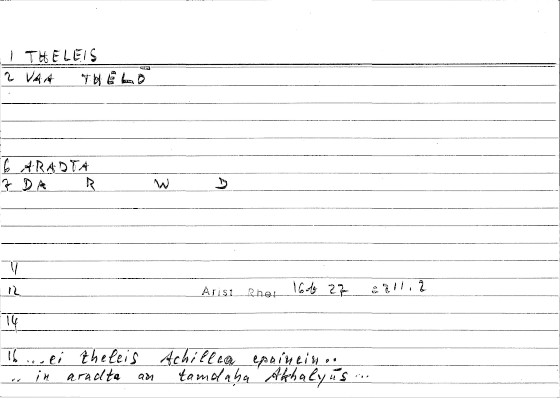 1 THELEIS
2 VAA THELŌ
6 ARADTA
7 DA R W D
11
12 Arist Rhet 16b 27 = 211.2
14
16 ...ei theleis Achillea epainein..
.. in aradta an tamdaḥa Akhalyūs ...